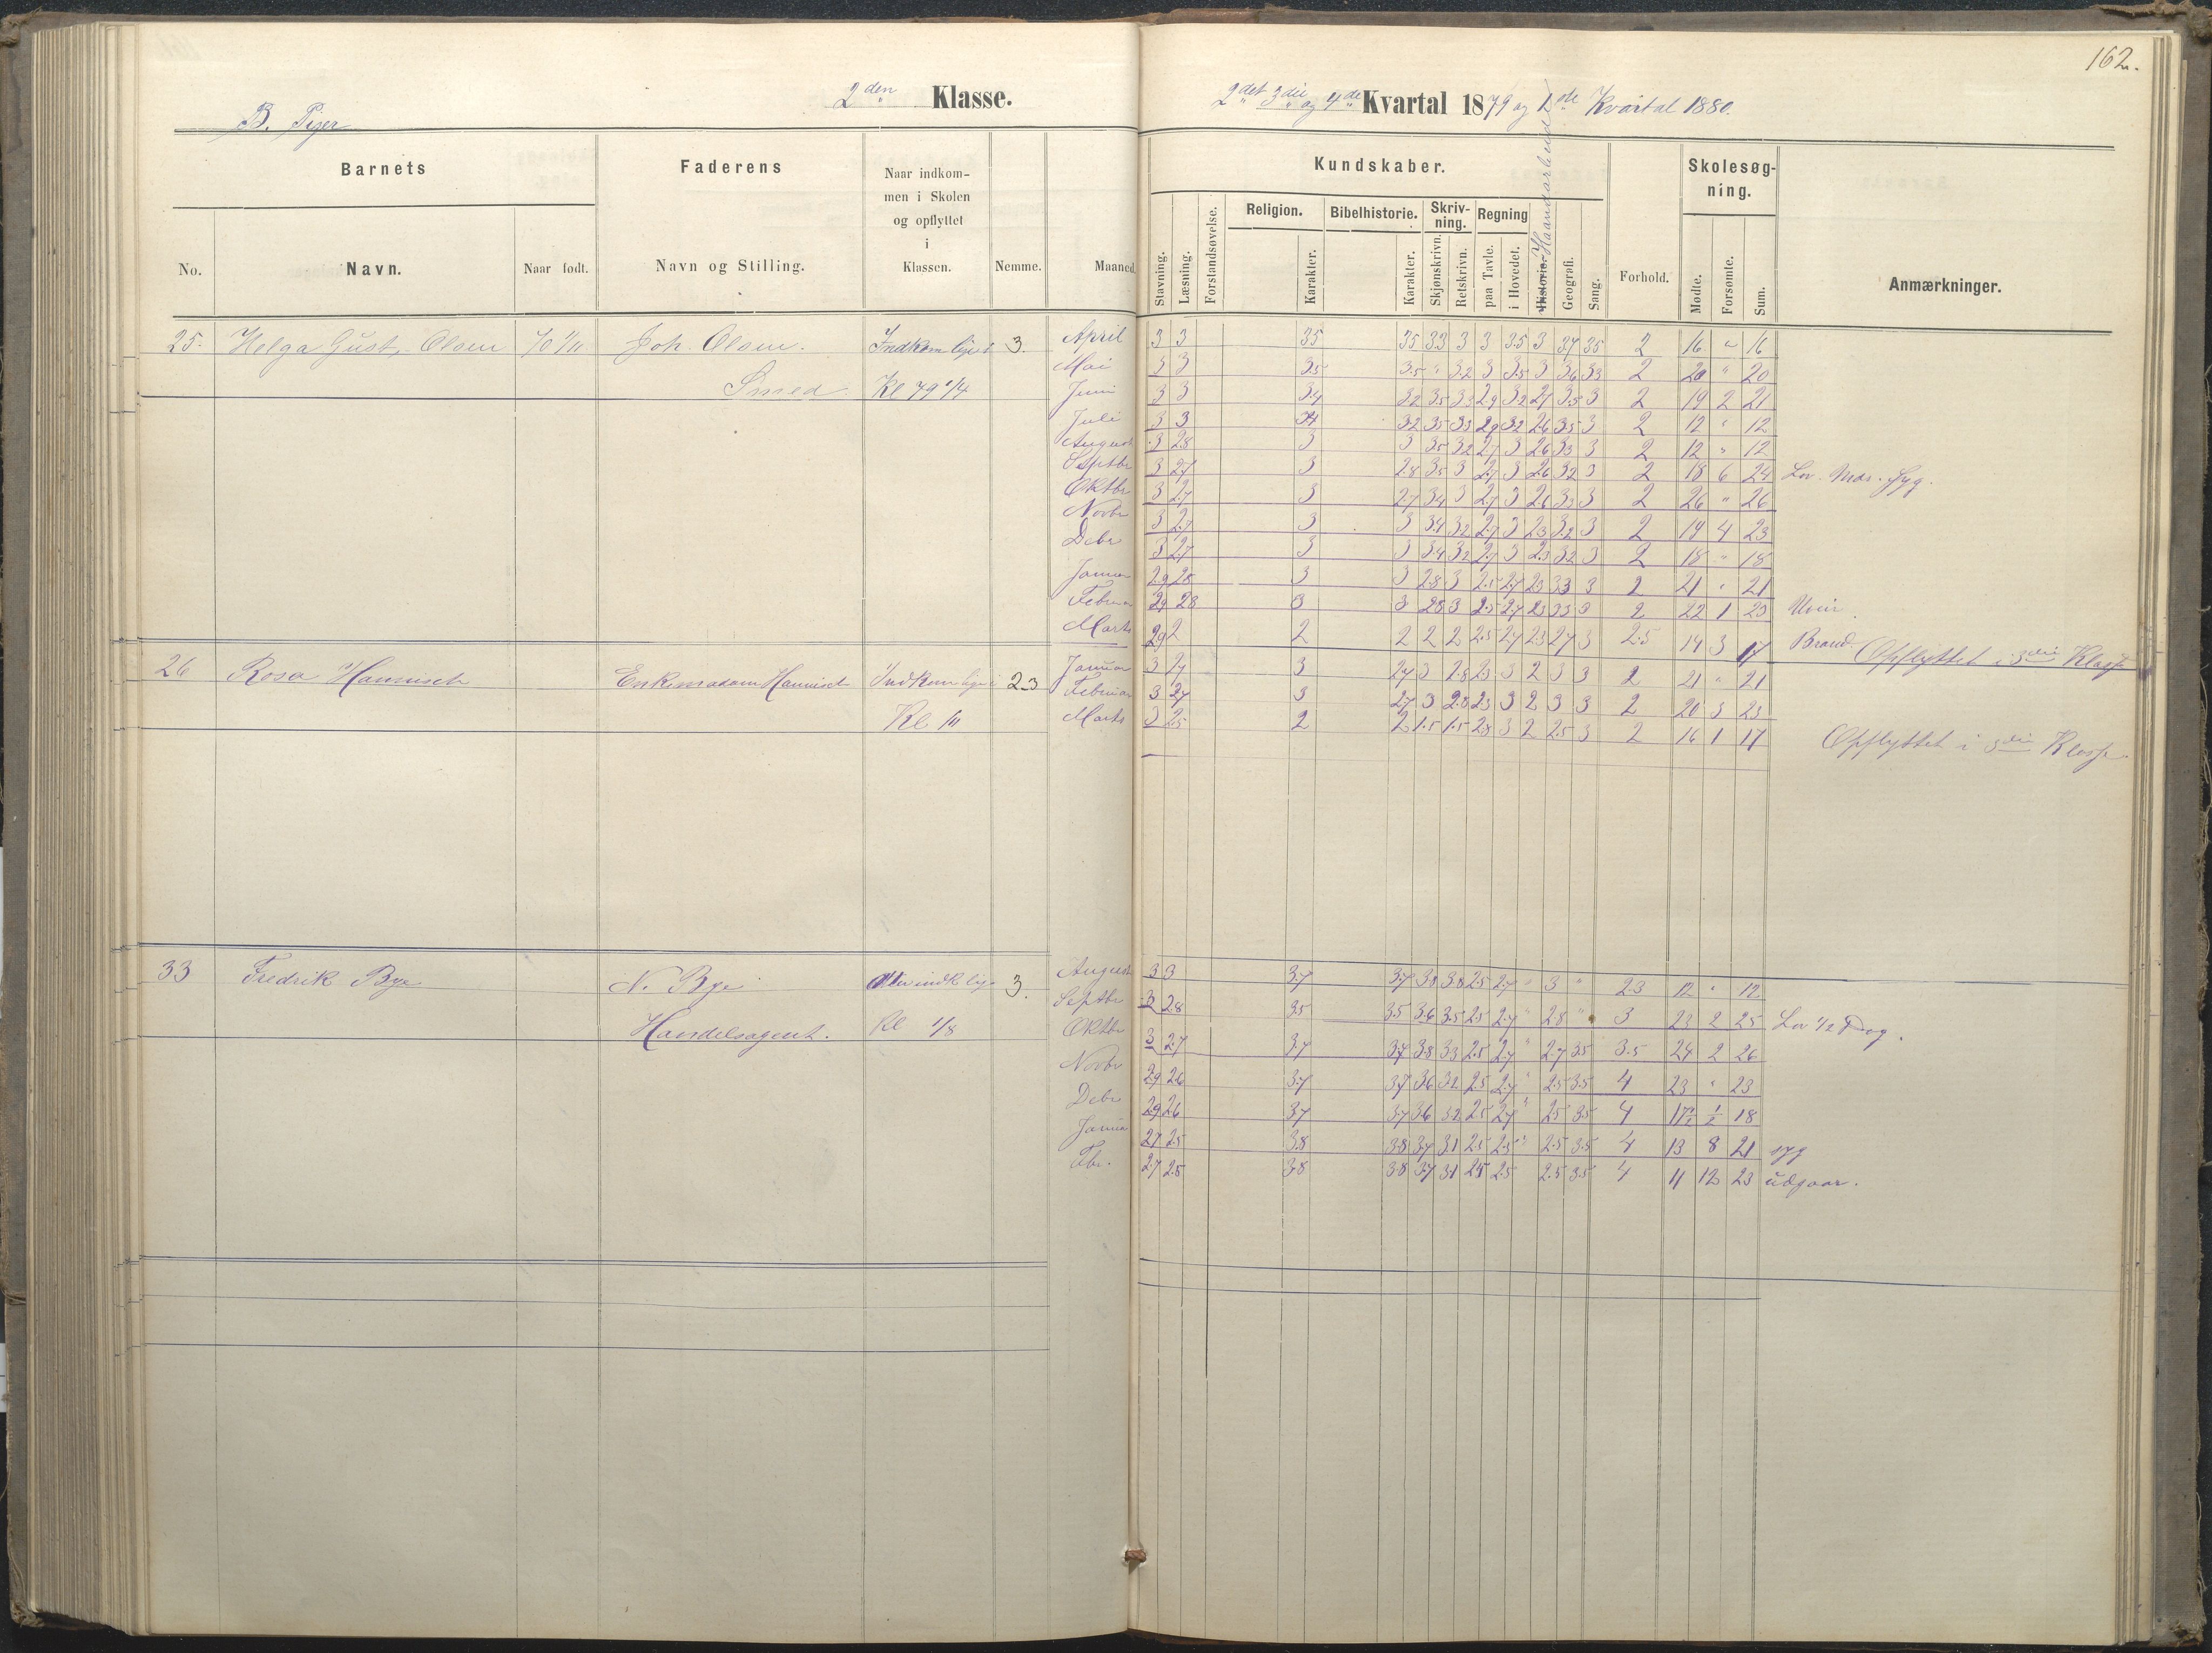 162.
B. Piger
2den Klasse.
2det 3die og 4de Kvartal 1879 og 1ste Kvartal 1880.
Barnets
Faderens
Naar indkommen i Skolen og opflyttet i Klassen.
Nemme.
Maaned.
No.
Navn.
Naar født.
Navn og Stilling.
Kundskaber.
Stavning.
Læsning.
Forstandsøvelse.
Religion.
Karakter.
Bibelhistorie.
Karakter.
Skrivning.
Skjønskrivn.
Retskrivn.
Regning
paa Tavle.
i Hovedet.
Historie. Haandarbeide
Geografi.
Sang.
Forhold.
Skolesøgning.
Mødte.
Forsømte.
Sum.
Anmærkninger.
25. Helga Gust. Olsen 70 Joh. Olsen. Indkom 3.
Smed Kl 79 1/4
April 3 3 35 35 33 3 3 3.5 3 37 35 2 16 " 16
Mai 3 3 35 3.5 " 3.2 3 3.5 3 36 33 2 20 " 20
Juni 3 3 3.4 32 35 33 2.9 32 27 3.5 3 2 19 2 21
Juli 3 3 32 35 33 29 32 26 35 3 2 12 " 12
August 3 28 3 3 35 32 2.7 3 26 33 3 2 12 " 12
Septbr 3 27 3 28 35 3 2.7 3 26 32 3 2 18 6 24
Oktbr 3 27 3 27 34 3 2.7 3 26 33 3 2 26 " 26
Novbr 3 27 3 3 34 32 2.7 3 23 32 3 2 19 4 23
Debr 3 27 3 3 34 32 2.7 3 23 32 3 2 18 " 18
Januar 29 28 3 3 28 3 2.5 27 23 33 3 2 21 " 21
Februar 29 28 3 3 28 3 2.5 27 23 33 3 2 22 1 23
Marts 29 2 2 2 2 2 2.5 27 23 27 3 2.5 14 3 17 Opflyttet i 3die Klasse
26 Rosa Hannisch Enkemadam Hannisch Indkom 2-3
Kl
Januar 3 27 3 27 3 28 23 3 2 3 3 2 21 " 21
Februar 3 27 3 27 3 28 23 3 2 3 3 2 20 3 23
Marts 3 25 2 2 1.5 1.5 28 3 2 2.5 3 2 16 1 17 Opflyttet i 3die Klasse.
33 Fredrik Bye N. Bye 3.
Handelsagent. Kl 1/8
August 3 3 37 37 38 38 25 27 " 3 " 23 12 " 12
Septbr 3 28 35 3.5 36 35 25 27 " 28 " 3 23 2 25 Lov 1/2 Dag.
Oktbr 3 27 37 37 38 33 25 27 " 2.7 35 3.5 24 2 26
Novbr 29 26 37 37 36 32 25 27 " 25 35 4 23 " 23
Debr 29 26 37 37 36 32 25 27 " 25 35 4 17½ ½ 18
Januar 27 25 38 38 37 31 25 25 " 2.5 3.5 4 13 8 21 syg
Fbr. 27 25 38 38 37 31 25 25 2.5 3.5 4 11 12 23 udgaar.